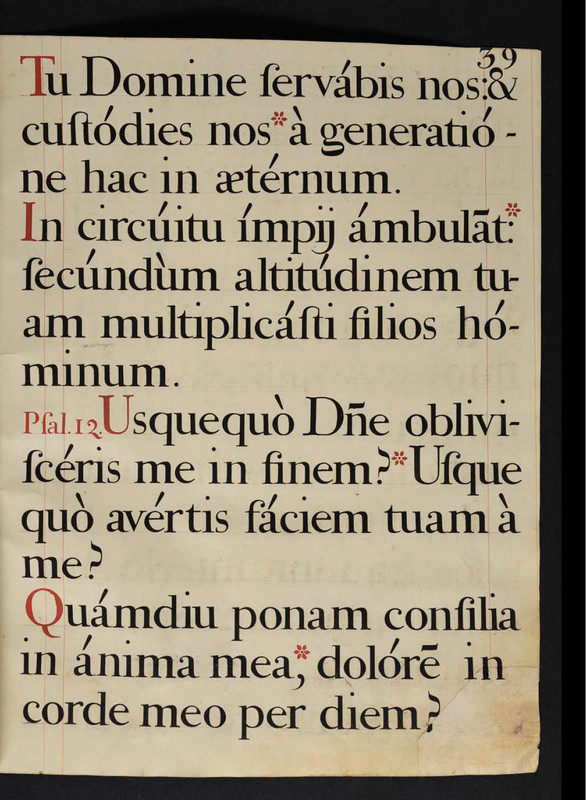 39
Tu Domine ſervábis nos:&
cuſtódies nos* à generatió-
ne hac in ætérnum.
In circúitu ímpij ámbulāt:*
ſecúndùm altitúdinem tu-
am multiplicáſti filios hó-
minum.
Pſal.12. Usquequò Dn̄e oblivi-
ſcéris me in finem?* Uſque
quò avértis fáciem tuam à
me?
Quámdiu ponam conſilia
in ánima mea,* dolórē in
corde meo per diem?